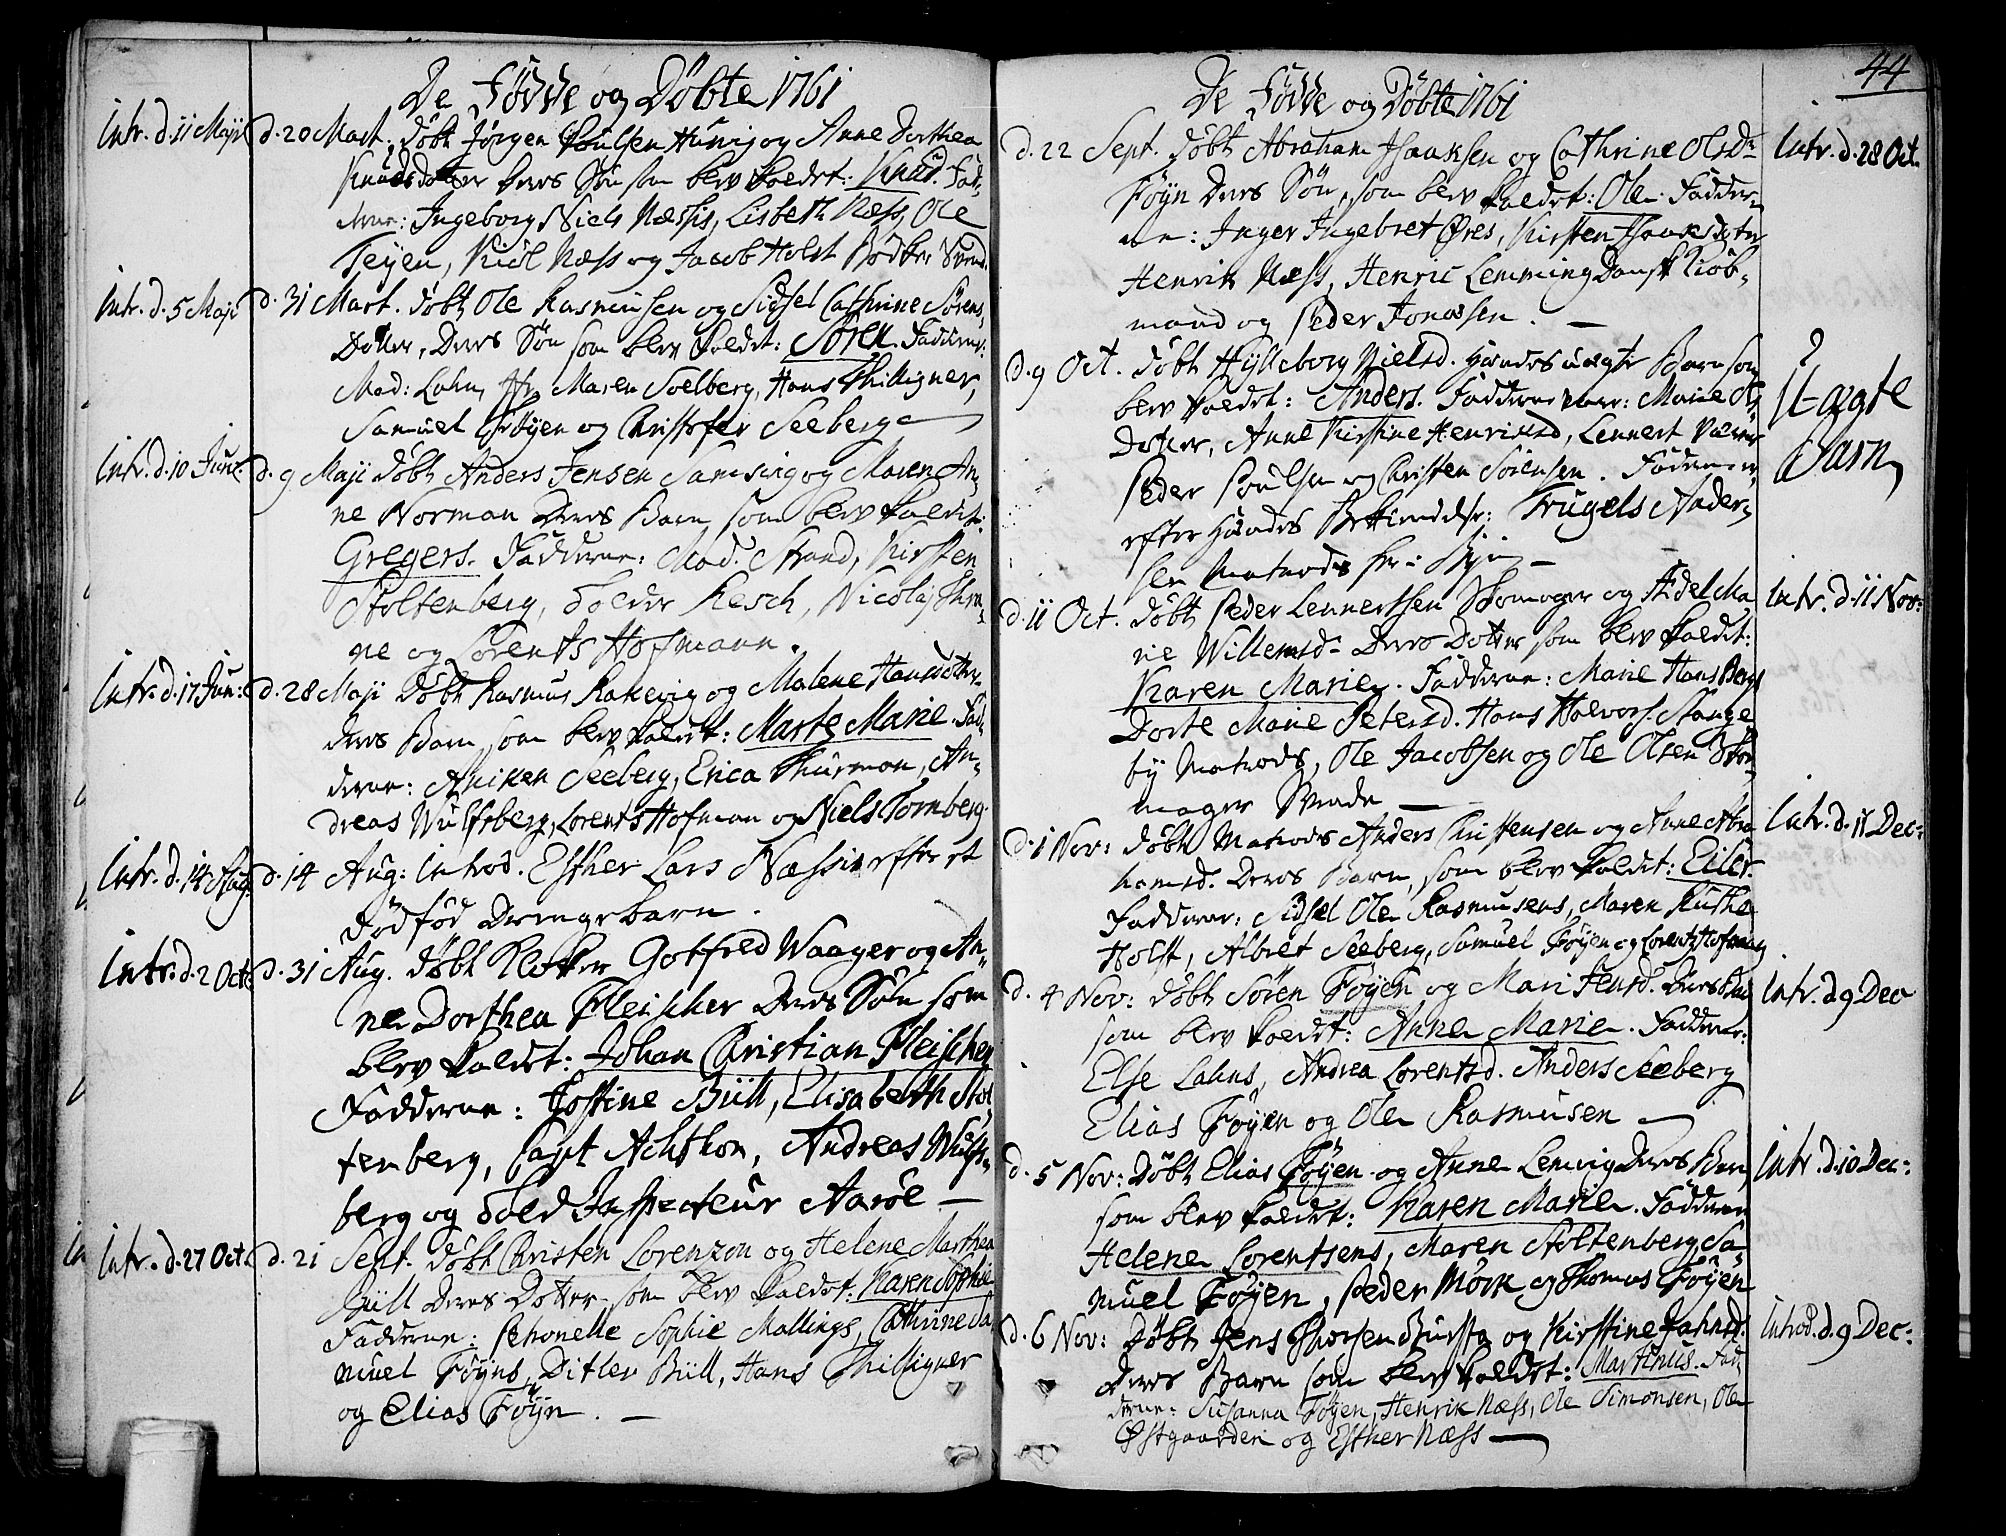 De Fødde og Døbte 1761
Intr. d. 11 Maji d. 20 Mart. døbt Jørgen Poulsen Hunig og Anne Dorthea
Knudsdotter deres Søn som blev kaldet: Knud. Fad-
derne: Ingeborg Niels Næssis, Lisbeth Næss, Ole
Teyen, Kiøl Næss og Jacob Holst Bødker Svend.
Intr. d. 5 Maji d. 31 Mart. døbt Ole Rasmusen og Sidsel Cathrine Sørens
Dotter, Deres Søn som blev kaldet: Søren. Fadderne:
Mad: Lahn, Jfr. Maren Soelberg, Hans Thilligner,
Samuel Føyen og Christofer Seeberg
Intr. d. 10 Jun: d. 9 Maji døbt Anders Jensen Samsing og Maren An-
ne Norman Deres Barn, som blev kaldet:
Gregers. Fadderne: Mad. Strand, Kirsten
Stoltenberg, Tolder Resch, Nicolaj Thra-
ne og Lorents Hofmann.
Intr. d. 17 Jun: d. 28 Maji døbt Rasmus Rakevig og Malene Hansdotter
deres Barn som blev kaldet: Marte Marie. Fad-
derne: Aniken Seeberg, Erica Thurman, An-
dreas Wulfsberg, Lorents Hofman og Niels Tornberg
Intr. d. 14 Aug. d. 14 Aug: introd. Esther Lars Næssis efter et
dødfød Drengebarn.
Intr. d. 2 Oct: d. 31 Aug. døbt Klokker Gotfred Waager og An-
ne Dorthea Fleischer Deres Søn som
blev kaldet: Johan Christian Fleischer
Fadderne: Jostine Büll, Elisabeth Stol
tenberg, Capt Achthon, Andreas Wulfs-
berg og Told Inspecteur Aarøe
Intr. d. 27 Oct. d. 21 Sept. døbt Christen Lorenzon og Helene Marthea
Büll Deres Dotter som blev kaldet: Karen Sophie
Fadderne: Petronelle Sophie Mallings, Cathrine Sa
muel Føyns, Ditlev Büll, Hans Thilligner
og Elias Føyn.
44
De Fødde og Døbte 1761
d. 22 Sept. døbt Abraham Isaaksen og Cathrine Olsdr Intr. d. 28 Oct.
Føyn Deres Søn, som blev kaldet: Ole. Fadder-
ne: Inger Ingebret Øres, Kirsten Isaaksdotter
Henrik Næss, Henric Lemming Dansk Kiøb-
mand og Peder Jonassen.
d. 9 Oct. døbt Hylleborg Nielsd. Hendes uægte Barn som ?
blev kaldet: Anders. Fadderne var: Marie Ols Uægte
Dotter, Anne Kirstine Henriksd, Lennert Barn
Peder Poulsen og Christen Sørensen. Faderen er
efter Hendes Bekiendelse: Trugels Ander-
sen Matrods her i Byen
d. 11 Oct. døbt Peder Lennertsen Skomager og Adel Ma Intr. d. 11 Nov:
rie Willemsd. Deres Dotter som blev kaldet:
Karen Marie. Fadderne: Marie Hans Bergs
Dorte Marie Petersd. Hans Halvors. Stange
by Matrods, Ole Jacobsen og Ole Olsen Sko-
mager Svende
d. 1 Nov: døbt Matrods Anders Christensen og Anne Abra Intr. d. 11 Dec:
hamsd. Deres Barn, som blev kaldet: Eiler.
Fadderne: Sidsel Ole Rasmusens, Maren Kusthe
Holst, Albret Seeberg, Samuel Føyen og Lorentz Hofmann
d. 4 Nov: døbt Søren Føyen og Mari Jensd. Deres Barn Intr. d. 9 Dec
som blev kaldet: Anne Marie. Fadderne:
Else Lahns, Andrea Lorentsd. Anders Seeberg
Elias Føyen og Ole Rasmusen
d. 5 Nov: Døbt Elias Føyen og Anne Lemvig Deres Barn Intr. d. 10 Dec:
som blev kaldet: Karen Marie. Fadderne
Helene Lorentsens, Maren Stoltenberg, Sa-
muel Føyen, Peder Mørk og Thomas Føyen
d. 6 Nov: Døbt Jens Thorsen Bursta og Kirstine Jahnsd: Introd. d. 9 Dec:
Deres Barn som blev kaldet: Martinus. Fad-
derne: Susanna Føyen, Henrik Næss, Ole Simonsen, Ole
Østgaarden og Esther Næss